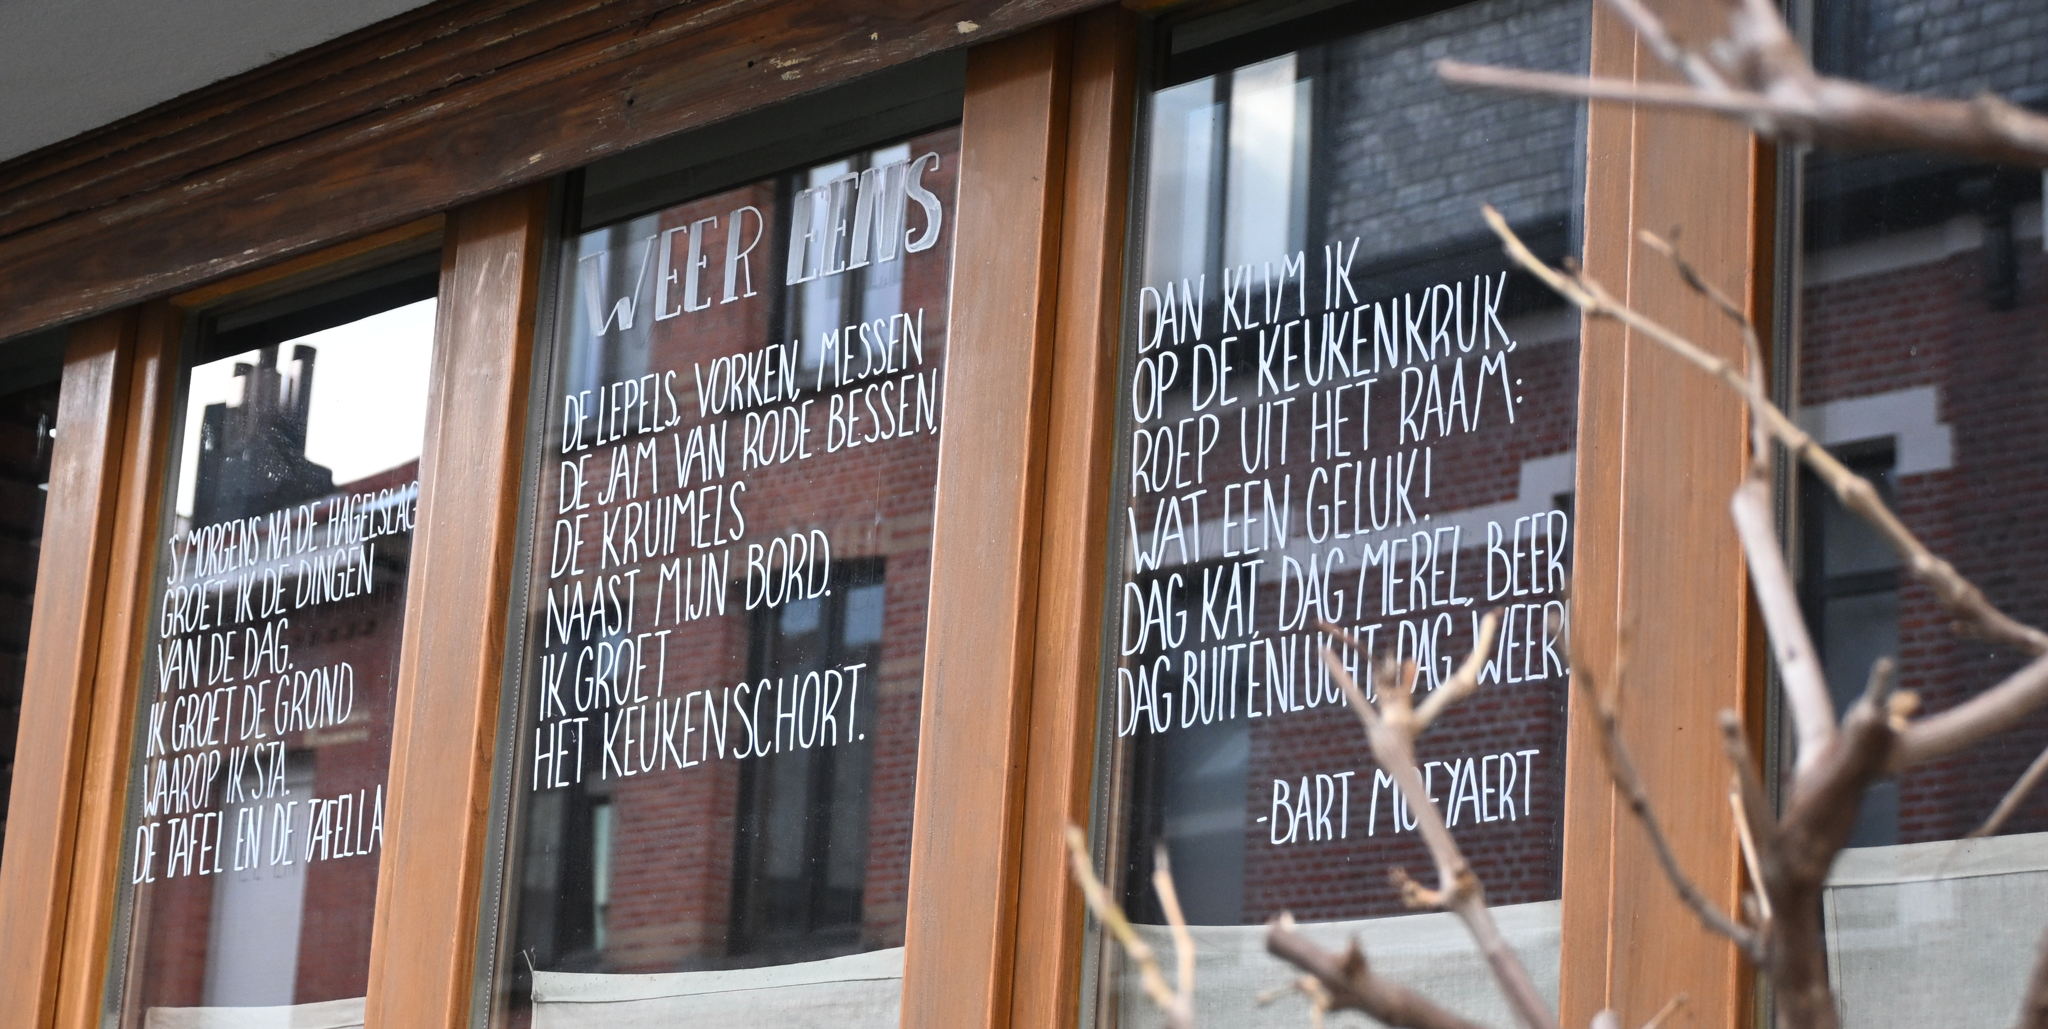 'S MORGENS NA DE HAGELSLAG
GROET IK DE DINGEN
VAN DE DAG.
IK GROET DE GROND
WAAROP IK STA.
DE TAFEL EN DE TAFELLA
WEER EENS
DE LEPELS, VORKEN, MESSEN
DE JAM VAN RODE BESSEN,
DE KRUIMELS
NAAST MIJN BORD.
IK GROET
HET KEUKENSCHORT.
DAN KLIM IK
OP DE KEUKENKRUK,
ROEP UIT HET RAAM:
WAT EEN GELUK!
DAG KAT, DAG MEREL, BEER
DAG BUITENLUCHT, DAG WEER!
-BART MOEYAERT